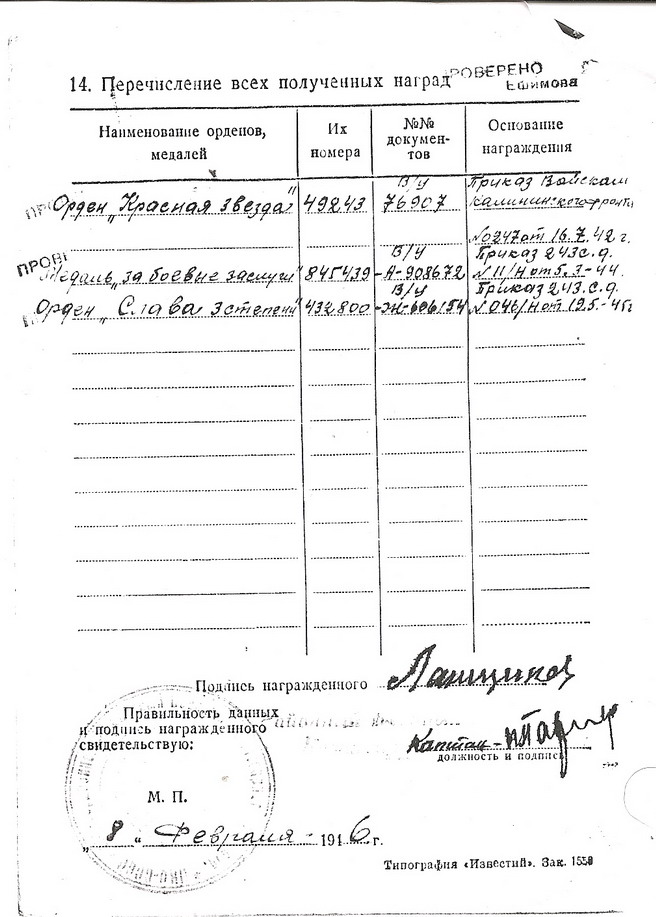 ПРОВЕРЕНО
Ешимова
14. Перечисление всех полученных наград
Наименование орденов, медалей
Их номера
№№ документов
Основание награждения
Орден „Красная Звезда" 49243 В/у 76907 Приказ Войскам Калининского фронта
№0247 от 16.7.42 г.
Медаль „за боевые заслуги" 845439 В/у А-908672 Приказ 243 с.д. №11/н от 5.3-44.
Орден „Слава 3 степени" 432800 В/у Приказ 243. с.д. №046/н от 19.5.-45г
Подпись награжденного
Правильность данных
и подпись награжденного
свидетельствую:
Капитан
должность и подпись
М. П.
„8" Февраля 1946 г.
Типография «Известий». Зак. 1550